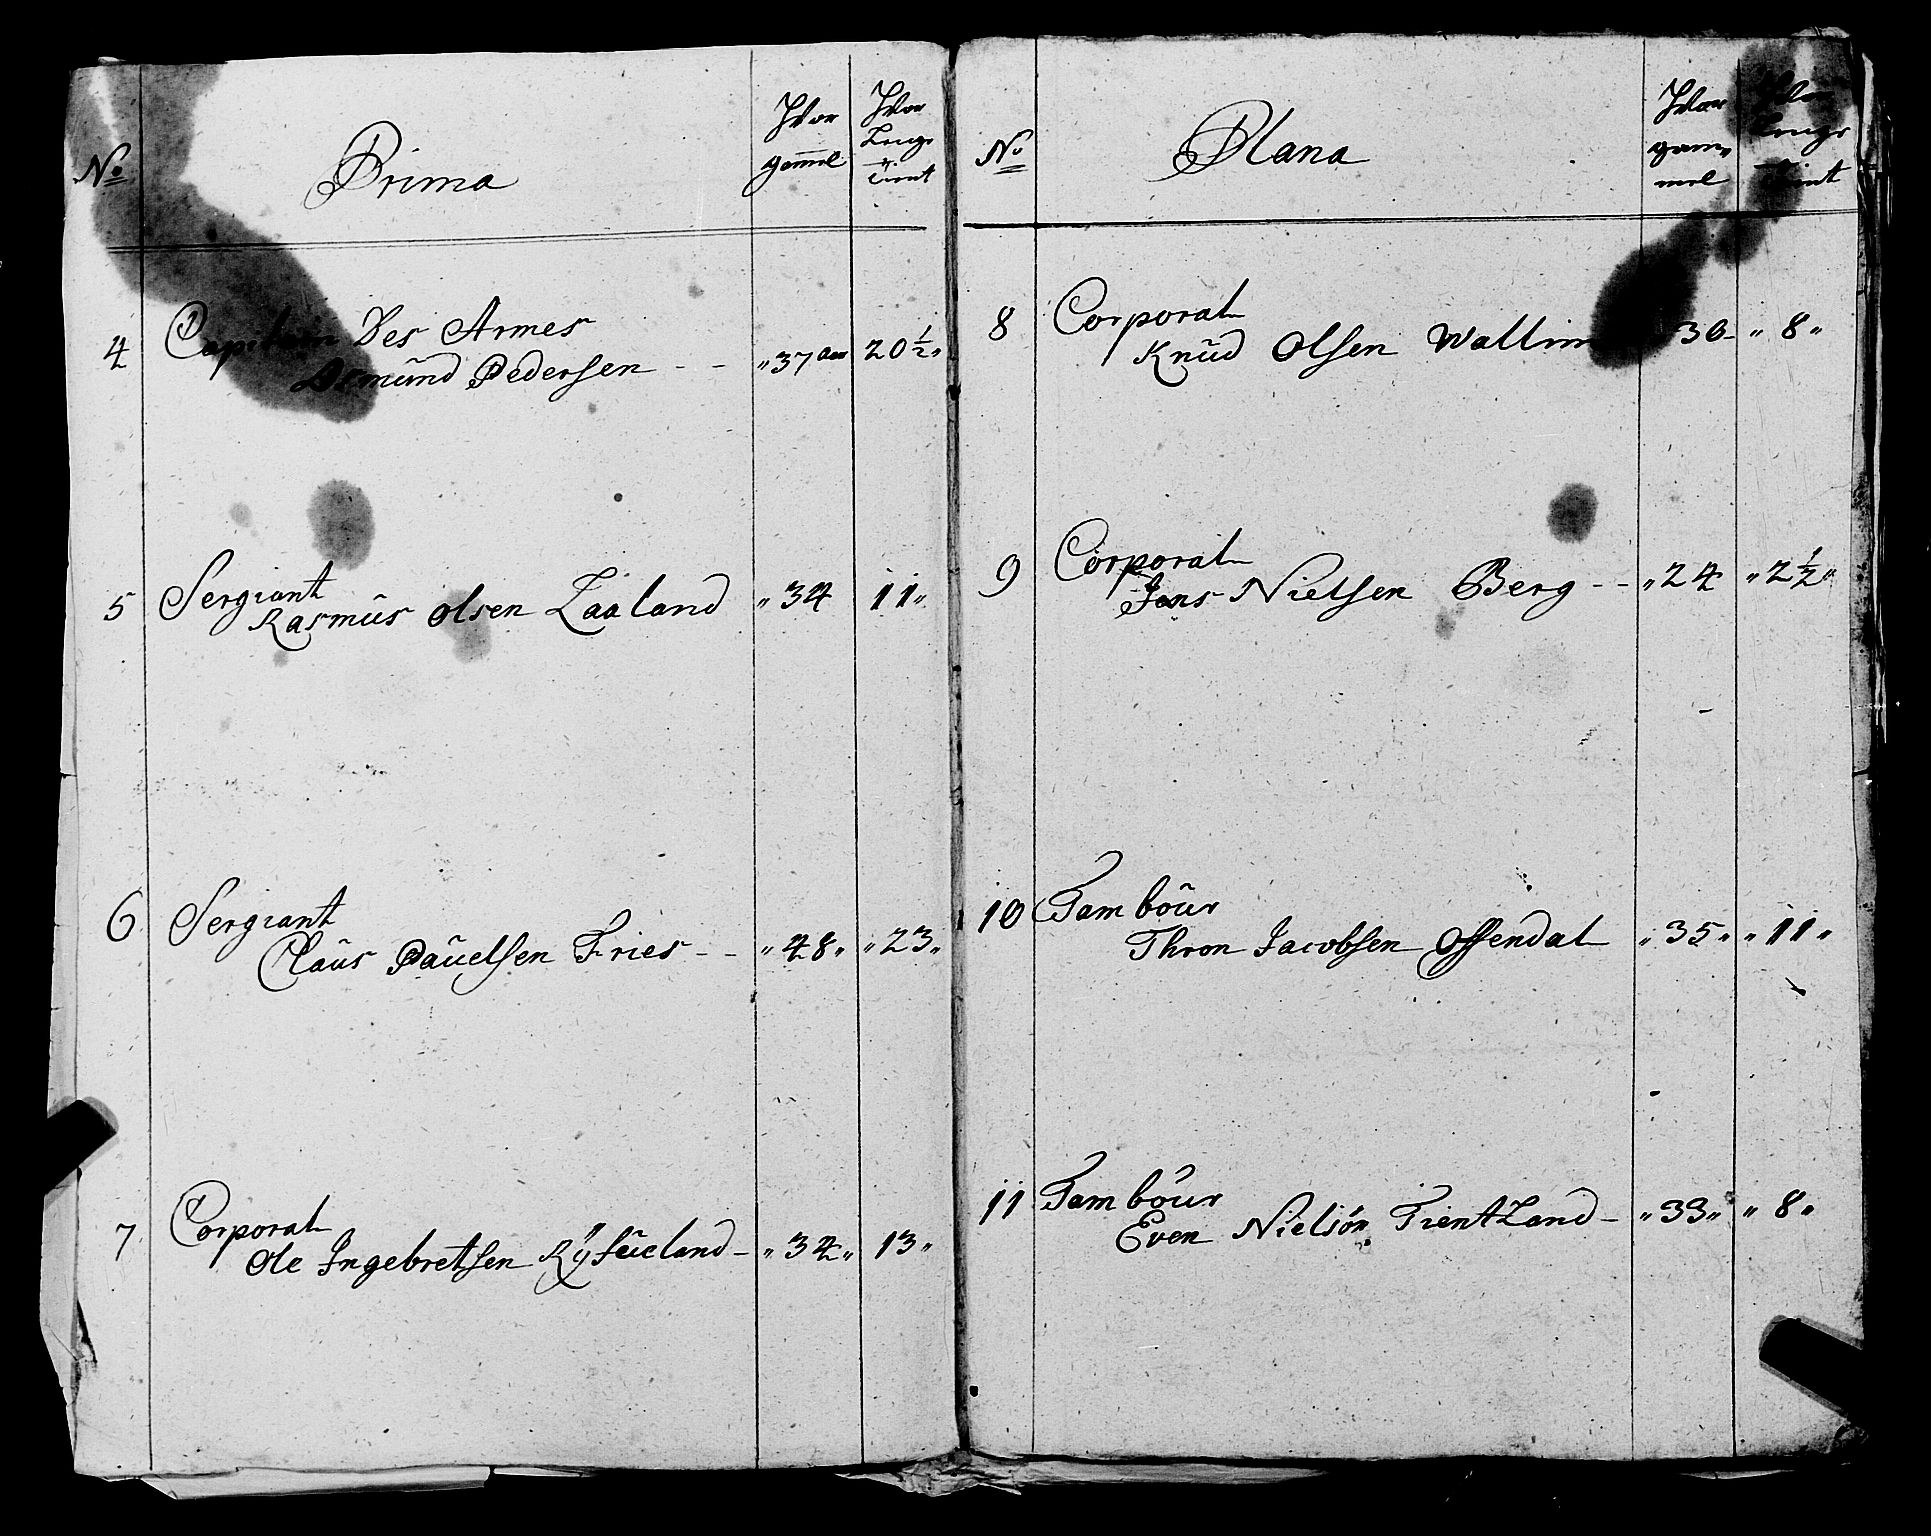 No Prima Hvor gammel Hvor Lenge Tient
4 Capitain Des Armes
Asmünd Pedersen - - „37 aar 20½„
5 Sergiant
Rasmüs Olsen Laaland „34 11„
6 Sergiant
Claüs Paüelsen Fries - - „48„ „23„
7 Corporal
Ole Ingebretsen Rÿfüeland - „34„ 13„
No Plana Hvor gammel Hvor Lenge Tient
8 Corporal
Knüd Olsen 30- „8„
9 Corporal
Jens Nielsen Berg - - „24 „2½„
10 Tamboür
Thron Jacobsen Offendal „35„ „11„
11 Tamboür
Even Nielsön TientLand - „33„ „8„